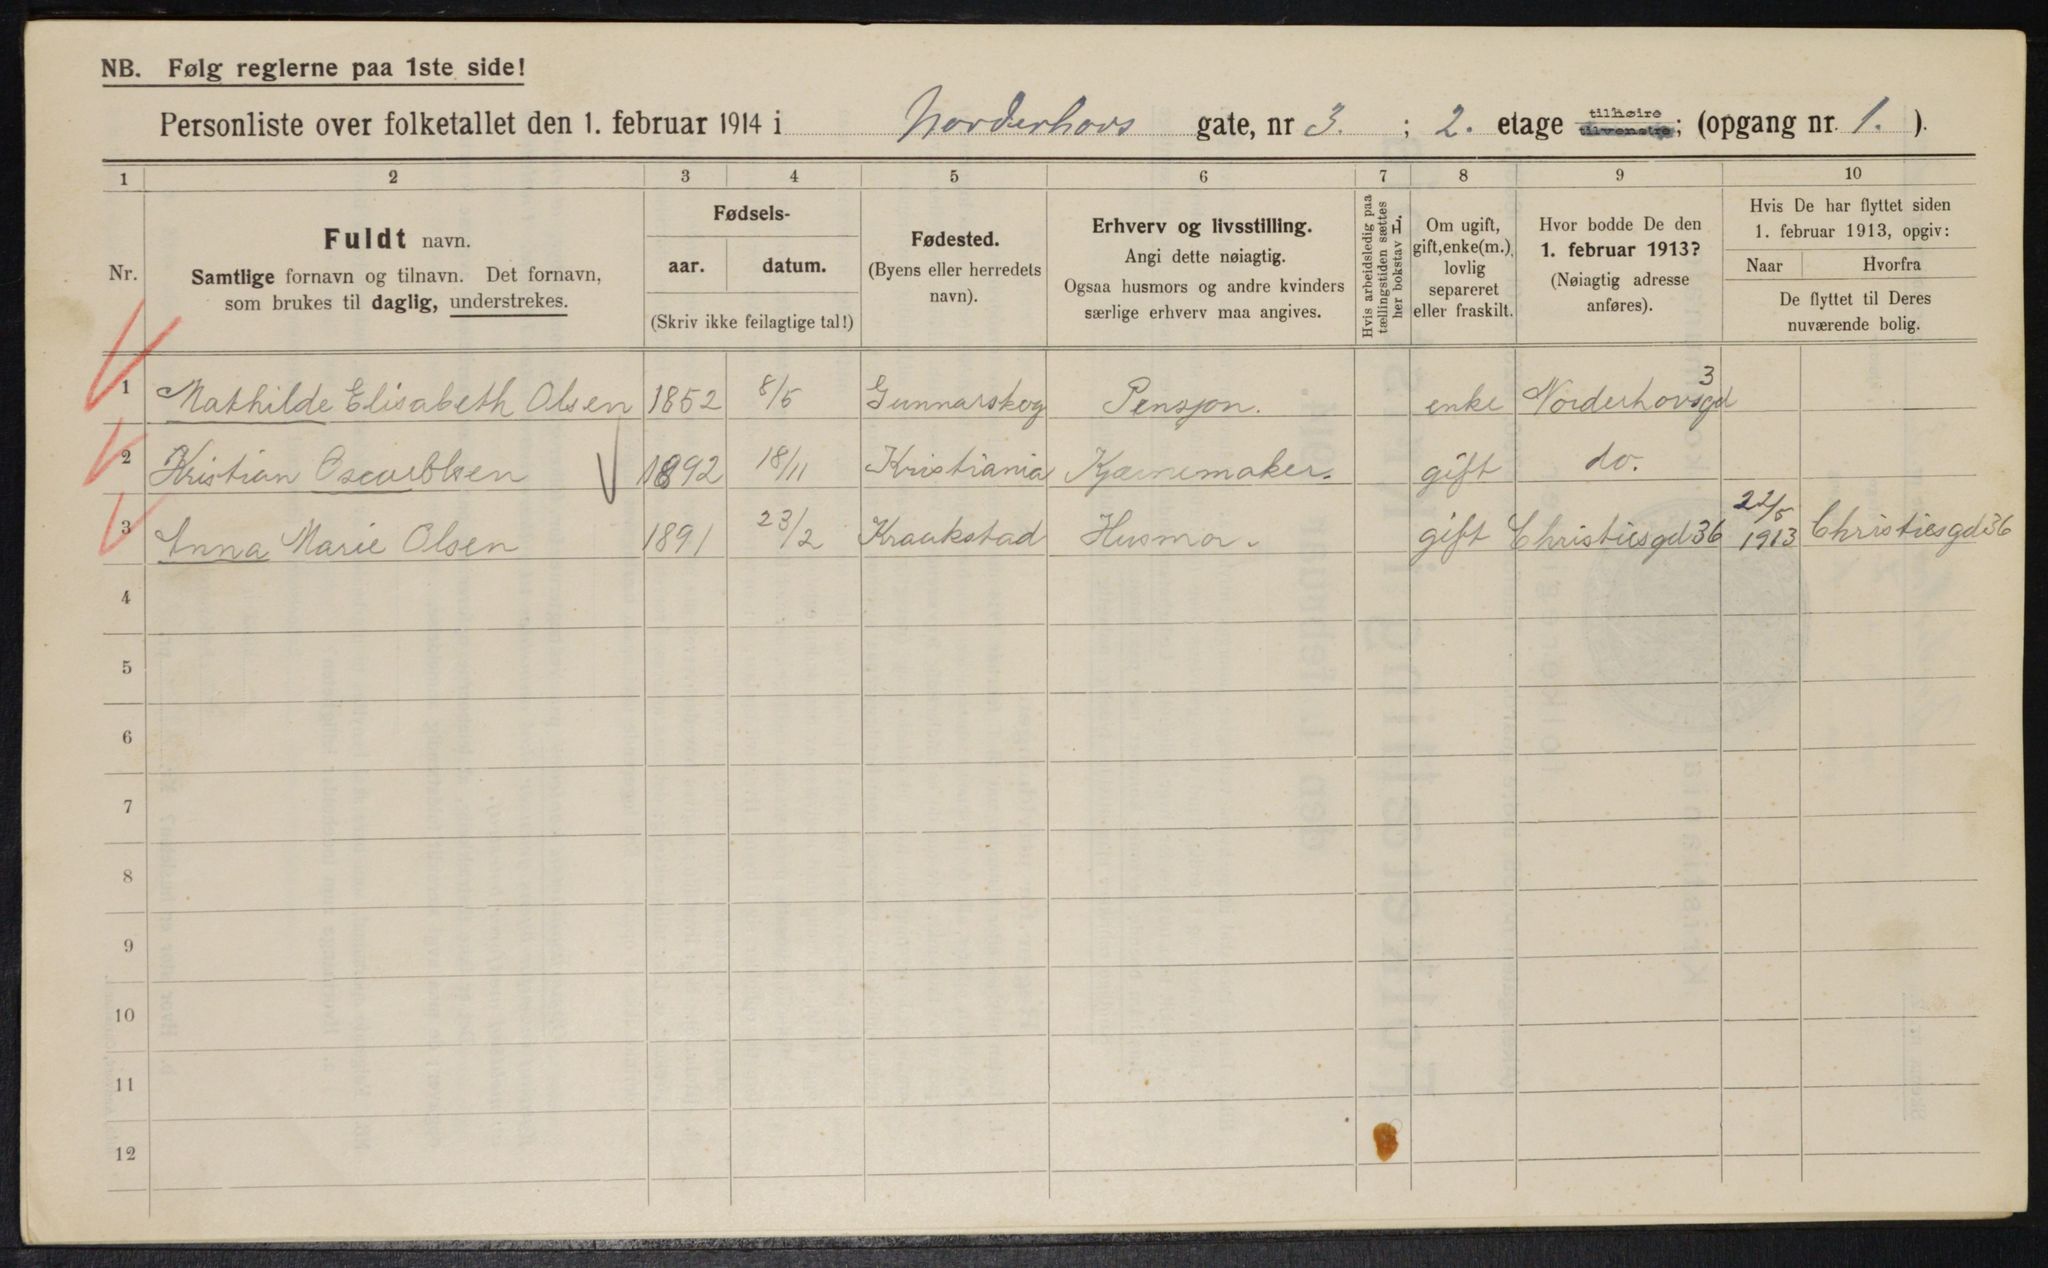 NB. Følg reglerne paa 1ste side!
Personliste over folketallet den 1. februar 1914 i Norderhovs gate, nr 3. ; 2. etage tilhøire tilvenstre; (opgang nr. 1. ).
1 2 3 4 5 6 7 8 9 10
Nr.
Fuldt navn.
Samtlige fornavn og tilnavn. Det fornavn,
som brukes til daglig, understrekes.
Fødsels-
aar. datum.
(Skriv ikke feilagtige tal!)
Fødested.
(Byens eller herredets
navn).
Erhverv og livsstilling.
Angi dette nøiagtig.
Ogsaa husmors og andre kvinders
særlige erhverv maa angives.
Hvis arbeidsledig paa
tællingstiden sættes
her bokstav L.
Om ugift,
gift, enke(m.),
lovlig
separeret
eller fraskilt.
Hvor bodde De den
1. februar 1913?
(Nøiagtig adresse
anføres).
Hvis De har flyttet siden
1. februar 1913, opgiv:
Naar Hvorfra
De flyttet til Deres
nuværende bolig.
1 Mathilde Elisabeth Olsen 1852 8/5 Gunnarskog Pensjon. enke Norderhovsgd 3
2 Kristian Oscar Olsen 1892 18/11 Kristiania Kjærnemaker. gift do.
3 Anna Marie Olsen 1891 23/2 Kraakstad Husmor. gift Christiesgd 36 22/5 1913 Christiesgd 36
4
5
6
7
8
9
10
11
12